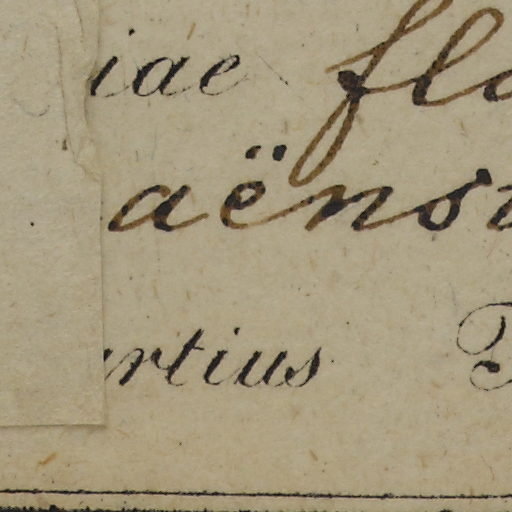 iae flo
aëns
rtius